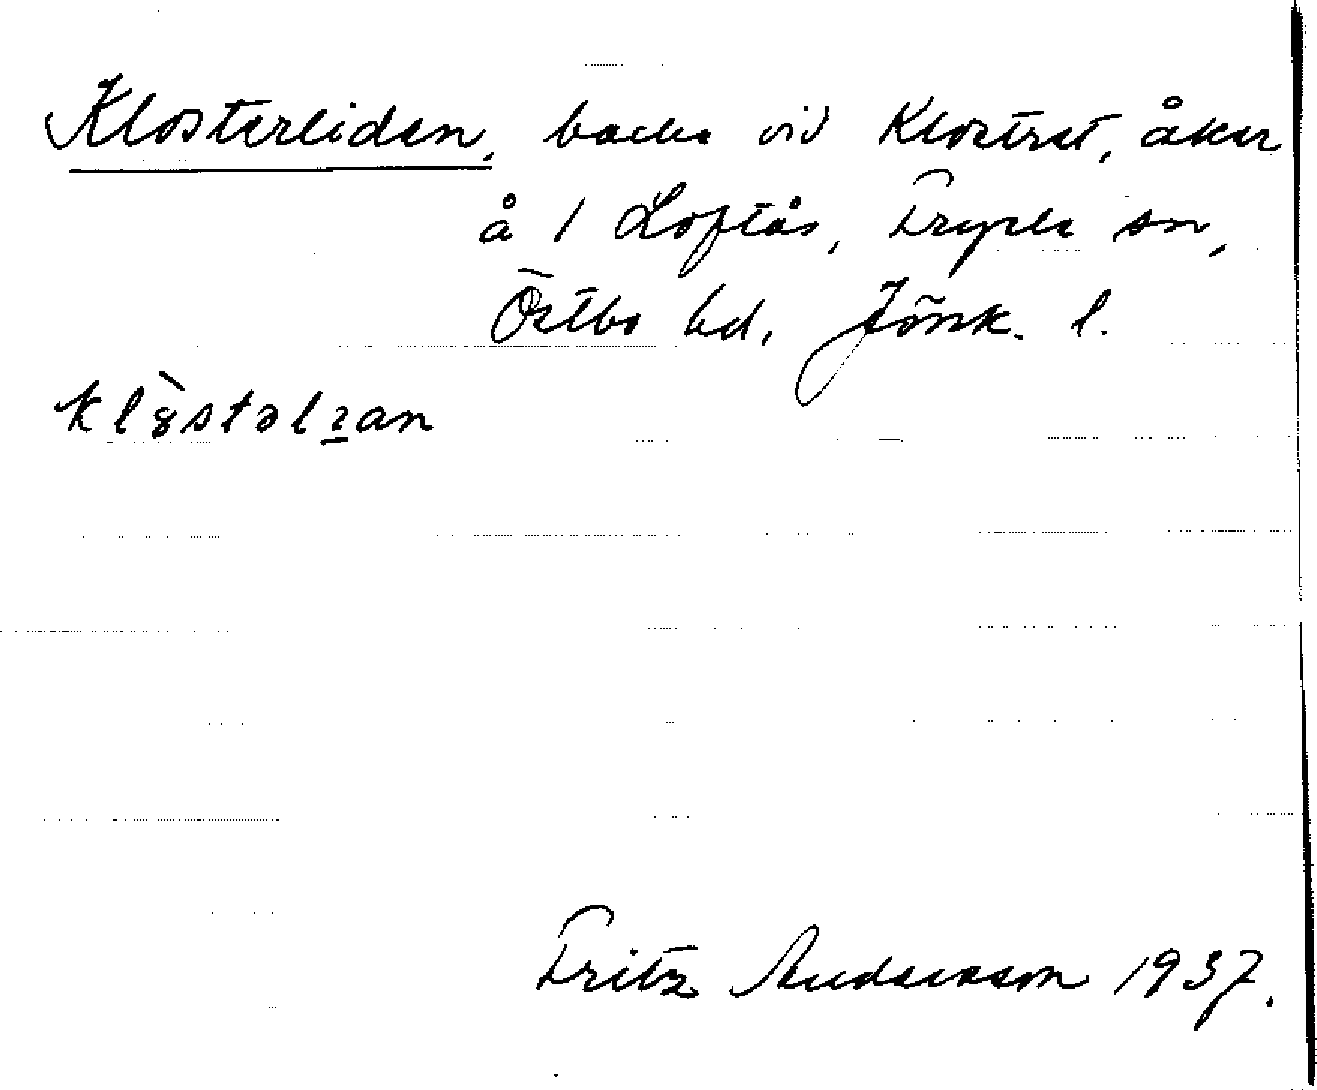 Klosterliden, backe vid Klostret, åker
å 1 Loftås, Fryele sn,
Östbo hd, Jönk. l.
Fritz Andersson 1937.